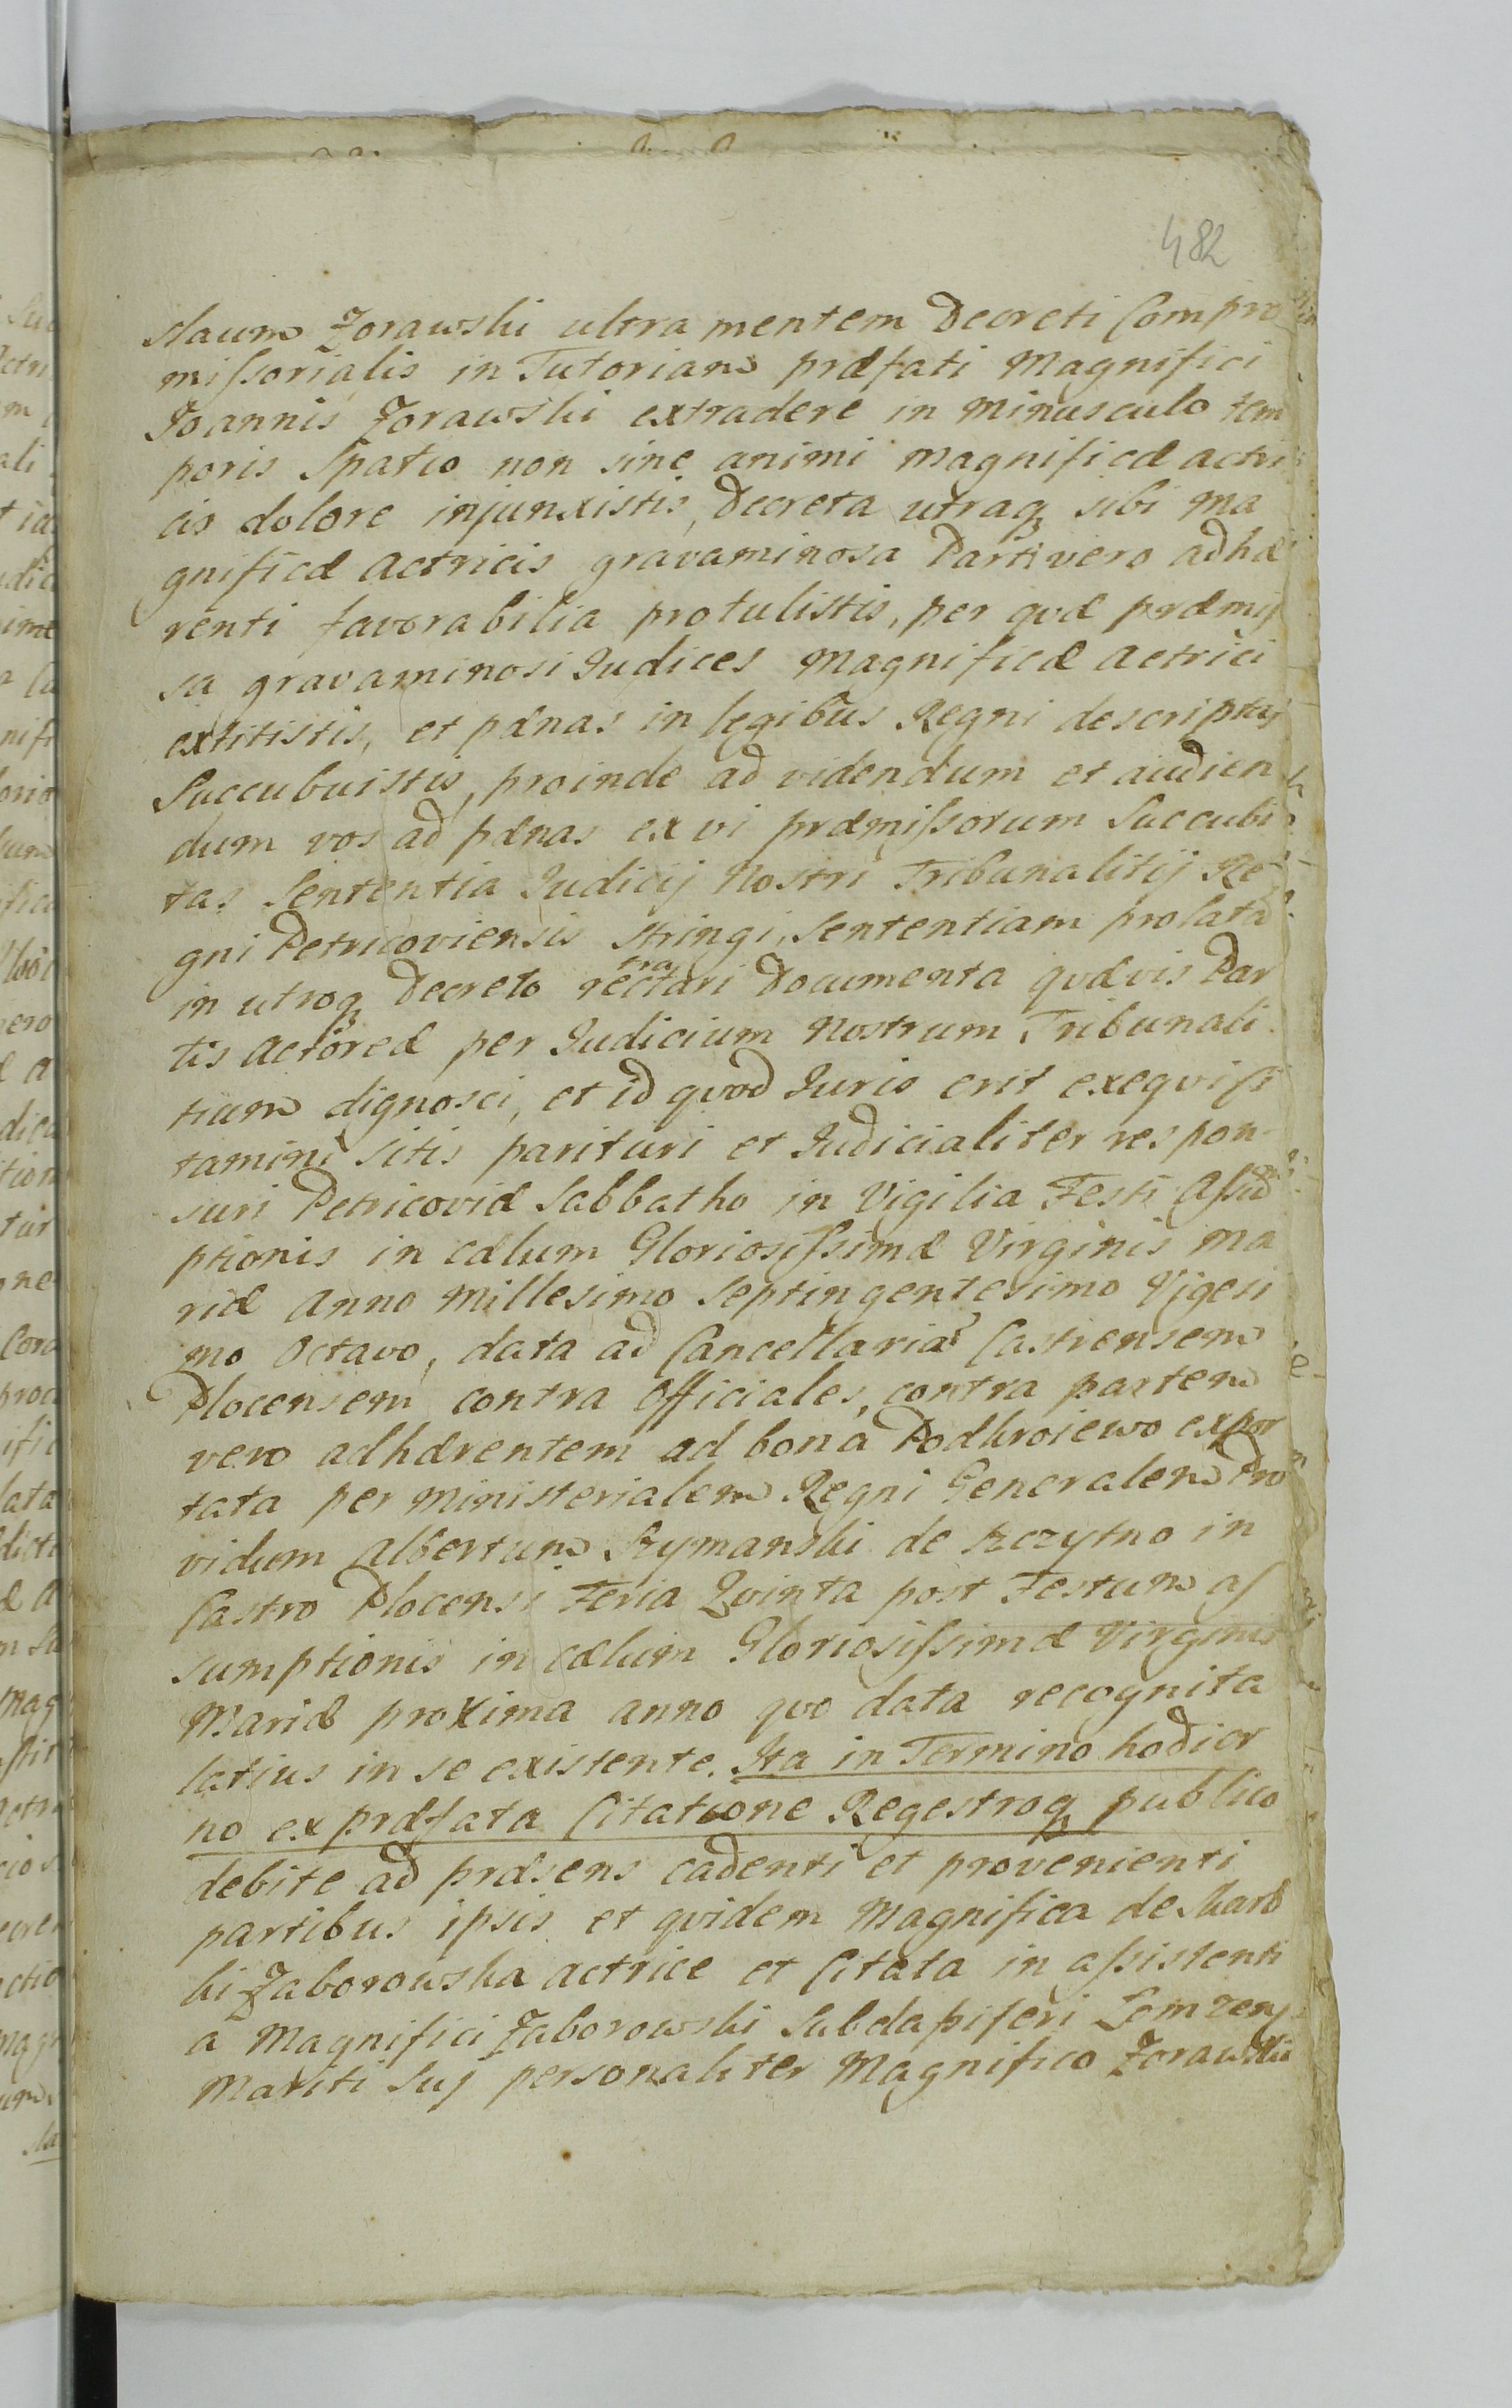 482
slaum Zorawski ultra mentem Decreti Compro
missorialis in Tutoriam præfati Magnifici
Joannis Zorawski extradere in minusculo tem
poris Spatio non sine animi magnificæ actri
cis dolore injunxistis, Decreta utraq sibi ma
gnificæ Actricis gravaminosa Parti vero adhæ
renti favorabilia protulistis, per qvæ præmis
sa gravaminosi Judices Magnificæ Actrici
extitistis, et pænas in legibus Regni descriptas
Succubuistis, proinde ad videndum et audien
dum vos ad pænas ex vi præmissorum Succubi
tas Sententia Judicij Nostri Tribunalitij Re
gni Petricoviensis stringi, Sententiam prolatã
in utroq Decreto rectari Documenta qvævis Par
tra
tis Actoreæ per Judicium Nostrum Tribunali
tium dignosci, et id qvod Juris erit exeqvi si
tamini sitis parituri et Judicialiter respon-
suri Petricoviæ Sabbatho in Vigilia Festi Assũ
ptionis in cælum Gloriosissimæ Virginis Ma
riæ Anno Millesimo Septingentesimo Vigesi
mo Octavo, data ad Cancellariã Castrensem
Plocensem contra Officiales, contra partem
vero adhærentem ad bona Podkrojewo expor
tata per Ministerialem Regni Generalem Pro
vidum Albertum Szymanski de Szczytno in
Castro Plocensi Feria Qvinta post Festum as
sumptionis in cælum Gloriosissimæ Virginis
Mariæ proxima anno qvo data recognita
latius in se existente. Ita in Termino hodier
no ex præfata Citatione Regestroq publico
debite ad præsens cadenti et provenienti
partibus ipsis et qvidem Magnifica de Skarb
ki Zaborowska actrice et Citata in assistenti
a Magnifici Zaborowski Subdapiferi Lomzens
Mariti Sui personaliter Magnifico Zorawski